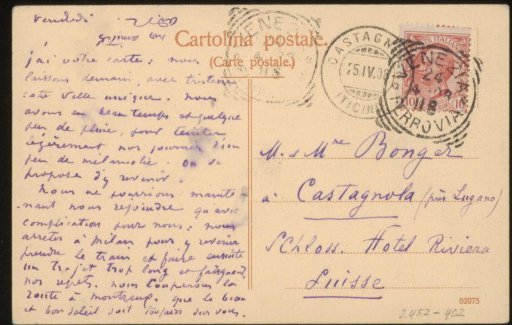 Vendredi
Cartolina postale.
(Carte postale.)
j'ai votre carte: nous
laissons demain, avec tristesse
cette ville unique. Nous
avons eu beau temps et quelque
peu de pluie, pour teinter
légèrement nos journées d'un
peu de mélancolie. On se
propose d'y revenir.
Nous ne pourrions mainte
nant vous rejoindre qu'avec
complication pour nous: nous
arrêter à Milan pour y revenir
prendre le train et faire ensuite
un trajet trop long et fatiguant
nos regrets. nous couperons la
route à Montreux. que le beau
et bon soleil soit toujours sur vous.
VENEZIA
CASTAGNOLA
25.IV.08
(TICINO)
VENEZIA
24
4
08
11 S
FERROVIA
10
M. & Mme Bonger
à Castagnola (près Lugano)
Schloss Hotel Riviera
Suisse
02075
2452-402